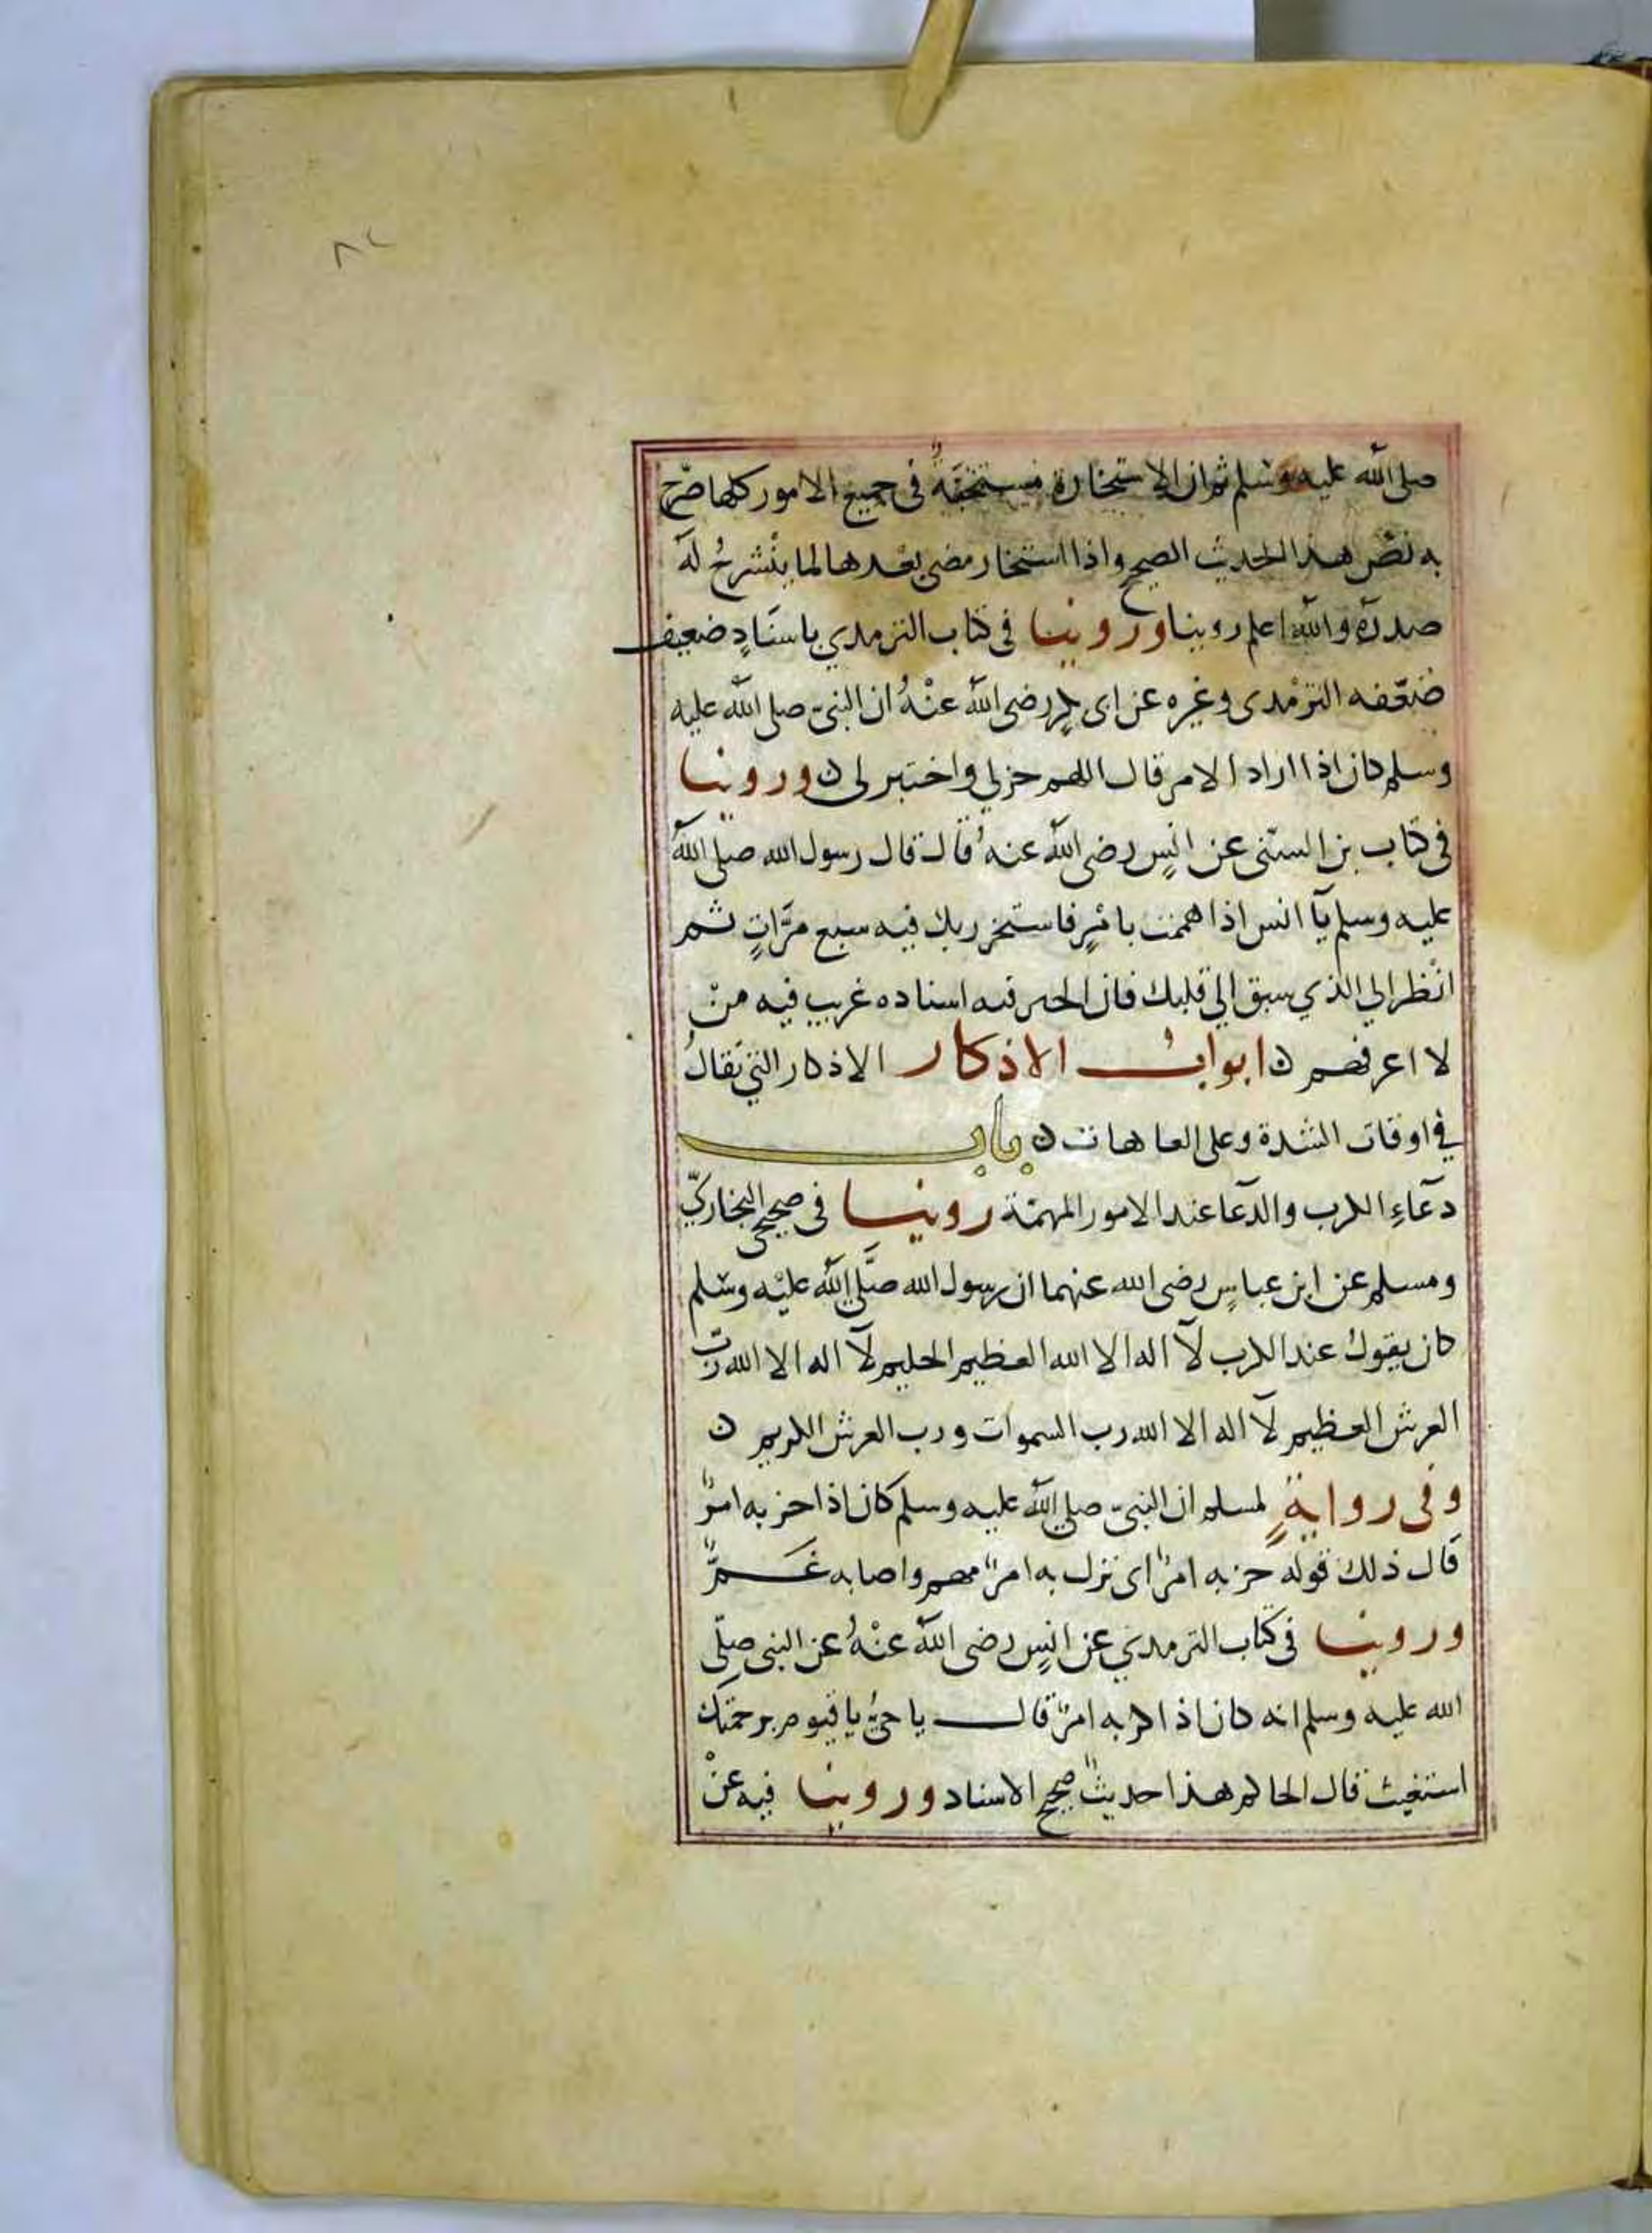 ٨٢
صلى الله عليه وسلم ثم ان الاستخارة مستحبَّةٌ فى جميع الامور كلها صَرَّح
به نصّ هذا الحديث الصحيح واذا استخار مضى بَعْدها لما ينْشرحُ له
صدره والله اعلم روينا وروينا فى كتاب الترمدي باسنَادٍ ضعيف
ضَعّفه الترْمدى وغيره عن ابى بكرٍ رضى الله عنْهُ ان النبىّ صلى الله عليه
وسلم كان اذا اراد الامر قال اللهم خر لي واختر لى ن وروينا
فى كتاب بن السنّى عن انسٍ رضى الله عنهُ قال قال رسول الله صلى الله
عليه وسلم يآ انس اذا هممت بامْرٍ فاستخر ربك فيه سبع مرَّاتٍ ثم
انْظر الي الذي سبق الي قلبك فان الخير فيه اسناده غريب فيه منْ
لا اعرفهم ن ابوابُ الاذكار الاذكار التي تقالُ
في اوقات الشدة وعلى العاهات ن باب
دعآءِ الكرب والدعآ عند الامور المهمّة روينا فى صحيحى البخاريّ
ومسلم عن ابن عباسٍ رضى الله عنهما ان رسول الله صَلَّى الله عليْه وسَلم
كان يقولُ عند الكرب لآ اله الا الله العظيم الحليم لآ اله الا الله ربّ
العرش العظيم لآ اله الا الله رب السموات ورب العرش الكريم ن
وفى روايةٍ لمسلم ان النبىّ صلى الله عليه وسلم كان اذا حزبه امرٌ
قال ذلك قوله حزبه امرٌ اى نزل به امرٌ مهم واصابه غَمٌّ
وروينا فى كتاب الترمدي عن انسٍ رضى الله عنْهُ عن النبى صلّى
الله عليه وسلم انه كان اذا كربه امرٌ قال يا حىُّ يا قيوم برحمتك
استغيث قال الحاكم هذا حديثٌ صحيح الاسناد وروينا فيه عنْ